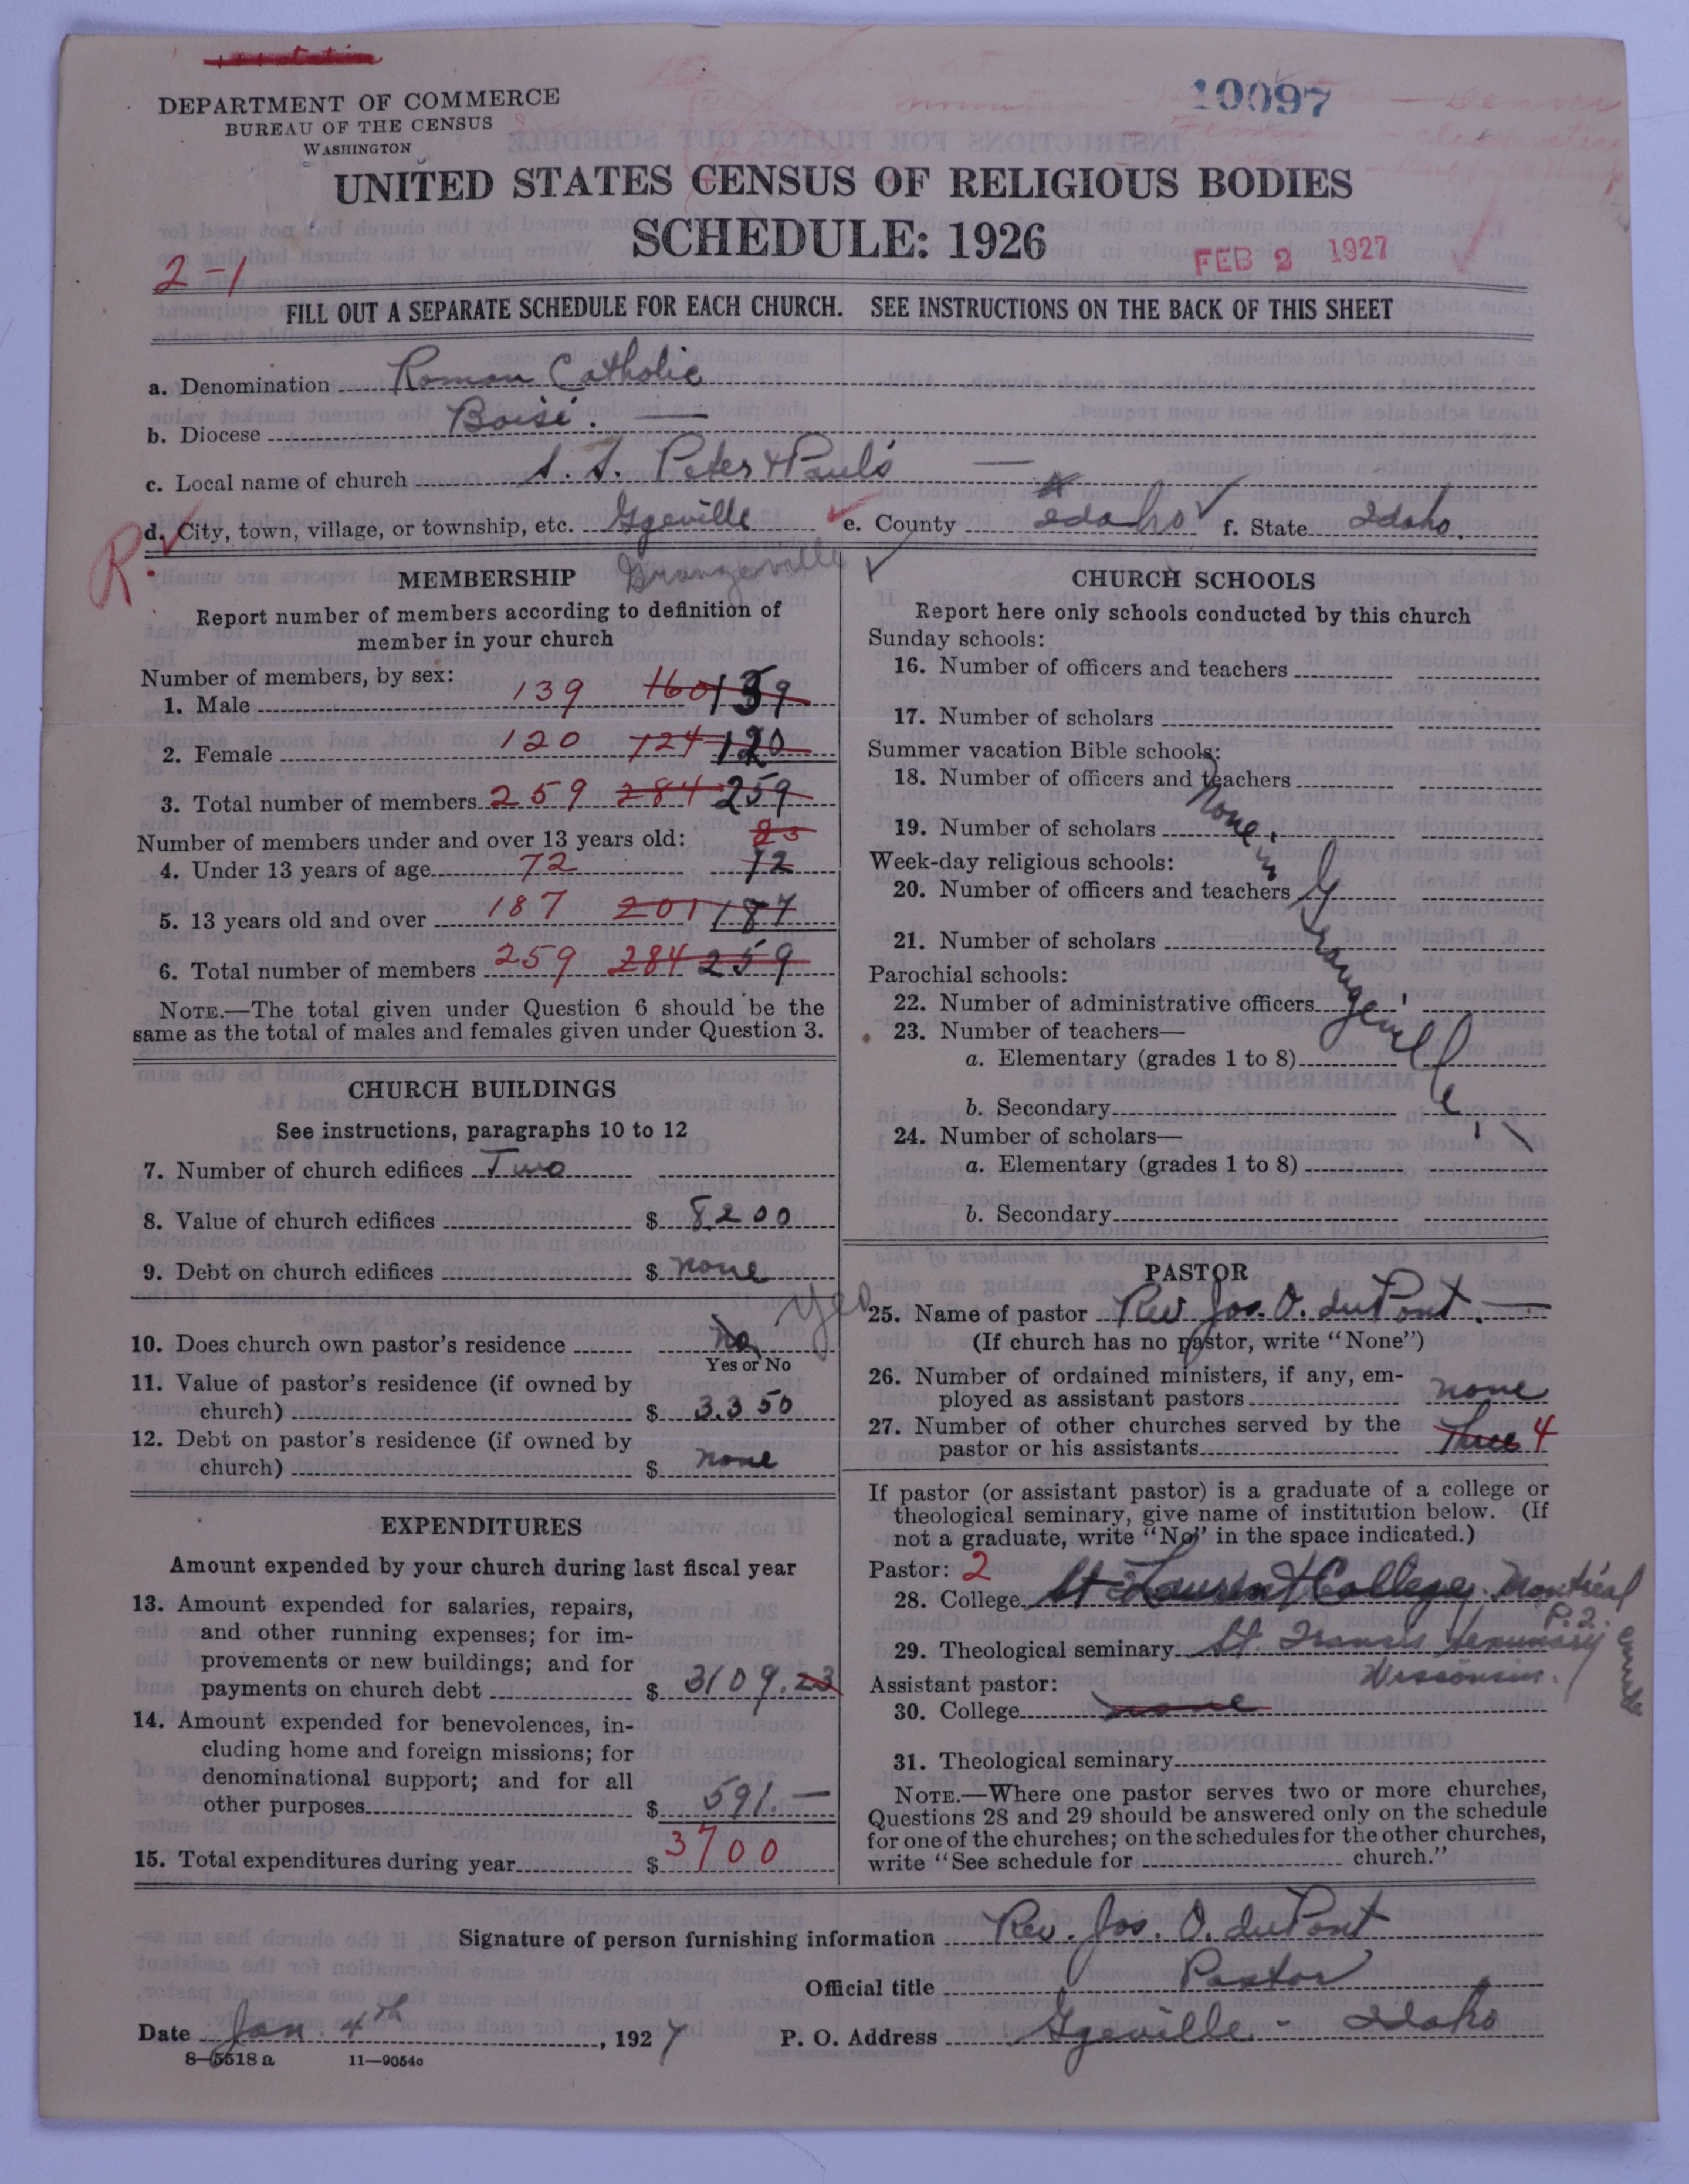 DEPARTMENT OF COMMERCE
BUREAU OF THE CENSUS
WASHINGTON
10097
UNITED STATES CENSUS OF RELIGIOUS BODIES
SCHEDULE: 1926
FEB 2 1927
2-1
FILL OUT A SEPARATE SCHEDULE FOR EACH CHURCH. SEE INSTRUCTIONS ON THE BACK OF THIS SHEET
a. Denomination Roman Catholic
b. Diocese Boise. —
c. Local name of church S. S. Peter & Paul's —
R. d. City, town, village, or township, etc. Ggeville e. County Idaho f. State Idaho.
Grangeville
MEMBERSHIP
Report number of members according to definition of
member in your church
Number of members, by sex:
1. Male 139 160 139
2. Female 120 124 120
3. Total number of members 259 284 259
Number of members under and over 13 years old: 83
4. Under 13 years of age 72 72
5. 13 years old and over 187 201 187
6. Total number of members 259 284 259
NOTE.—The total given under Question 6 should be the
same as the total of males and females given under Question 3.
CHURCH BUILDINGS
See instructions, paragraphs 10 to 12
7. Number of church edifices Two
8. Value of church edifices $ 8200
9. Debt on church edifices $ none
10. Does church own pastor's residence no yes
Yes or No
11. Value of pastor's residence (if owned by
church) $ 3.350
12. Debt on pastor's residence (if owned by
church) $ none
EXPENDITURES
Amount expended by your church during last fiscal year
13. Amount expended for salaries, repairs,
and other running expenses; for im-
provements or new buildings; and for
payments on church debt $ 3109.23
14. Amount expended for benevolences, in-
cluding home and foreign missions; for
denominational support; and for all
other purposes $ 591.—
15. Total expenditures during year $ 3700
CHURCH SCHOOLS
Report here only schools conducted by this church
Sunday schools:
16. Number of officers and teachers
17. Number of scholars
Summer vacation Bible schools:
18. Number of officers and teachers
19. Number of scholars
None in Grangeville
Week-day religious schools:
20. Number of officers and teachers
21. Number of scholars
Parochial schools:
22. Number of administrative officers
23. Number of teachers—
a. Elementary (grades 1 to 8)
b. Secondary
24. Number of scholars—
a. Elementary (grades 1 to 8)
b. Secondary
PASTOR
25. Name of pastor Rev Jos. O. duPont. —
(If church has no pastor, write "None")
26. Number of ordained ministers, if any, em-
ployed as assistant pastors none
27. Number of other churches served by the
pastor or his assistants three 4
If pastor (or assistant pastor) is a graduate of a college or
theological seminary, give name of institution below. (If
not a graduate, write "No" in the space indicated.)
Pastor: 2
28. College St Laurent College, Montreal
P.Q. Canada
29. Theological seminary St. Francis Seminary
Wisconsin.
Assistant pastor:
30. College none
31. Theological seminary
NOTE.—Where one pastor serves two or more churches,
Questions 28 and 29 should be answered only on the schedule
for one of the churches; on the schedules for the other churches,
write "See schedule for church."
Signature of person furnishing information Rev. Jos. O. duPont
Official title Pastor
Date Jan. 4th, 1927 P. O. Address Ggeville - Idaho
8—5518 a 11—9054c